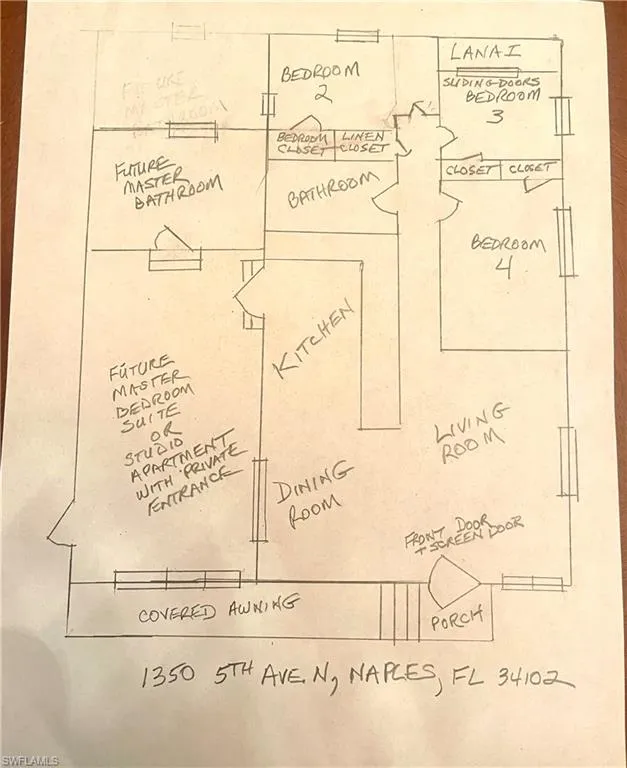 LANAI
SLIDING DOORS
BEDROOM
3
BEDROOM
2
FUTURE
MASTER
BATHROOM
BEDROOM
CLOSET
LINEN
CLOSET
FUTURE
MASTER
BATHROOM
BATHROOM
CLOSET
CLOSET
BEDROOM
4
KITCHEN
FUTURE
MASTER
BEDROOM
SUITE
OR
STUDIO
APARTMENT
WITH PRIVATE
ENTRANCE
LIVING
ROOM
DINING
ROOM
FRONT DOOR
+ SCREEN DOOR
COVERED AWNING
PORCH
1350 5TH AVE. N, NAPLES, FL 34102
SWFLAMLS